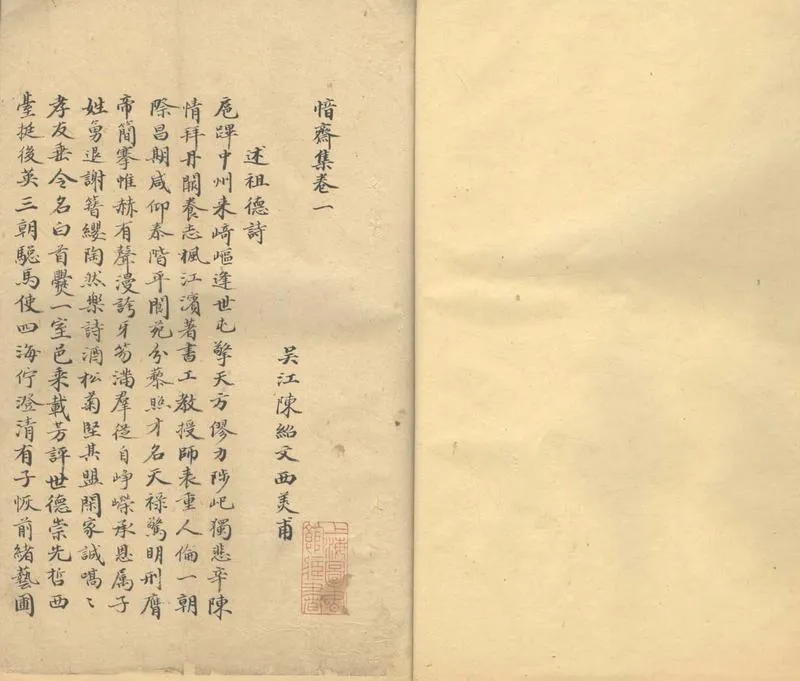 愔齋集卷一
吴江陳紹文西美甫
述祖德詩
扈蹕中州来崎嶇逢世屯擎天方僇力陟屺獨悲辛陳
情拜丹闕養志楓江濱著書工教授師表重人倫一朝
際昌期咸仰泰階平閬苑分藜照才名天禄驚明刑膺
帝簡搴帷赫有聲漫誇牙笏滿羣從自峥嶸承恩属子
姓勇退謝簪纓陶然樂詩酒松菊堅其盟閑家誠嗃〻
孝友垂令名白首爨一室邑乘載芳評世德崇先哲西
臺挺後英三朝驄馬使四海佇澄清有子恢前緒藝圃
上海圖書館藏書